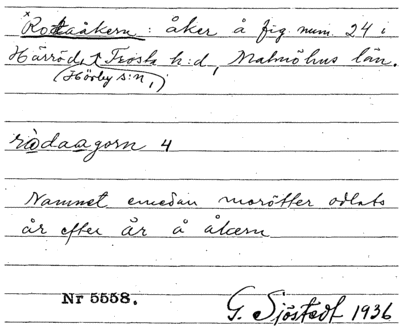 x Rotaåkern : åker å fig. num. 24 i
Härröd, Frosta h:d, Malmöhus län.
(Hörby s:n,)
4
Namnet emedan morötter odlats
år efter år å åkern
Nr 5558.
G. Sjöstedt 1936